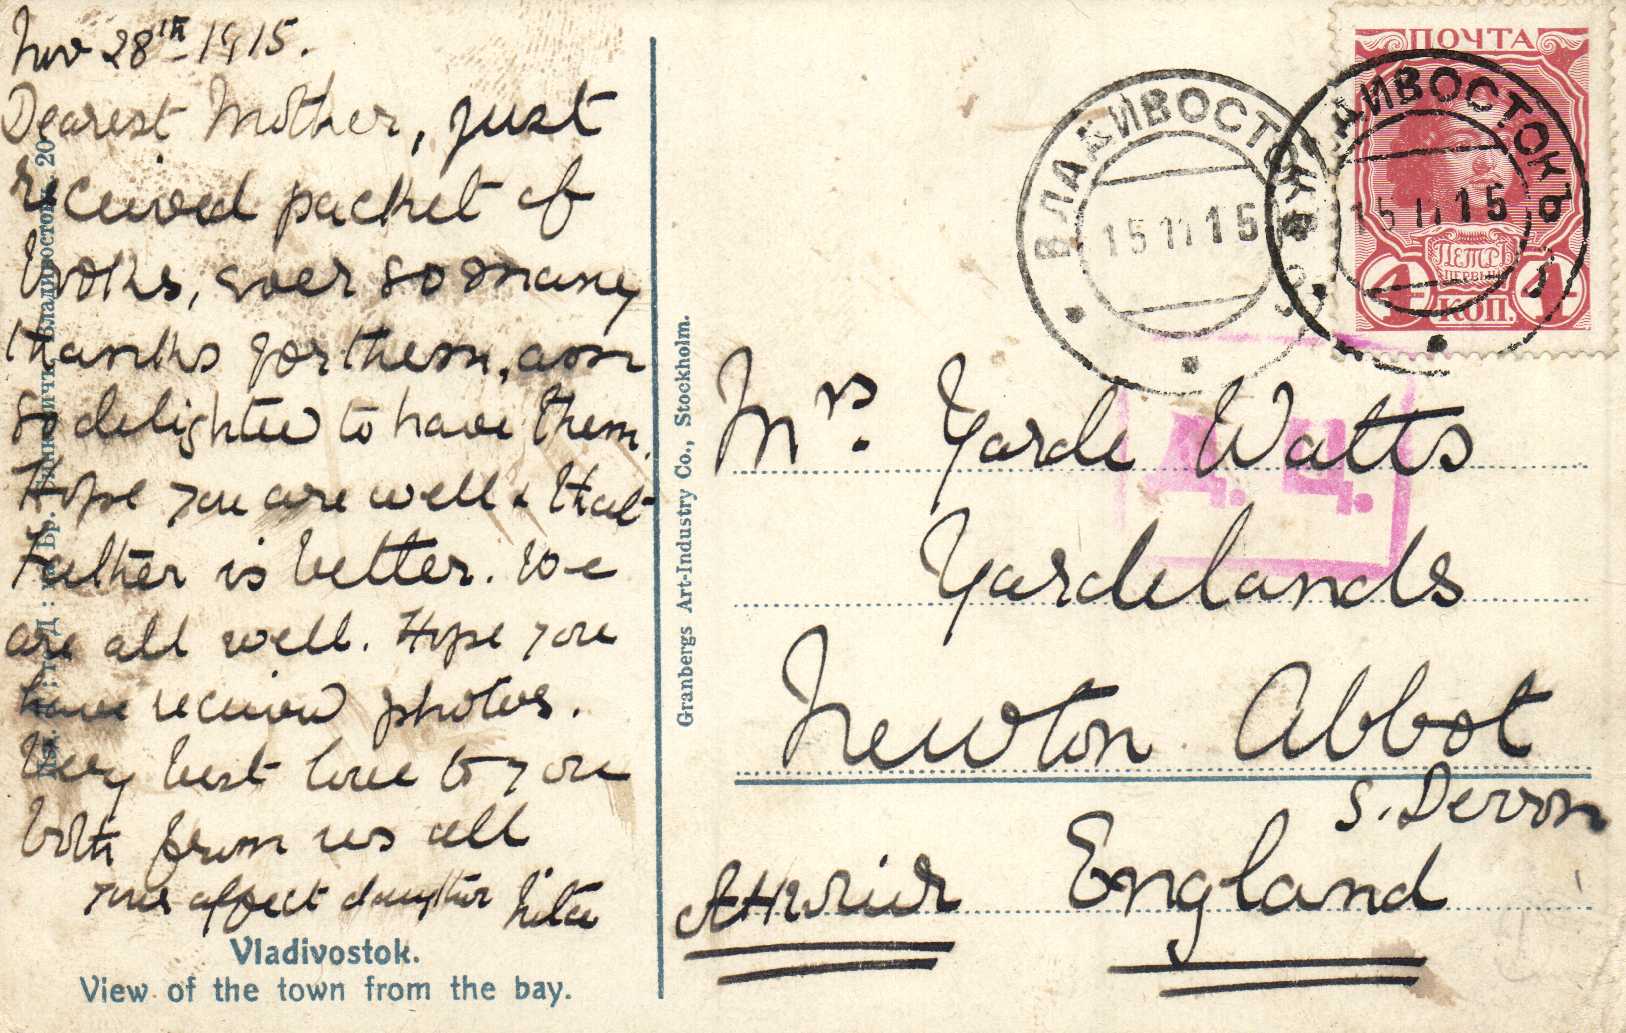 Nov 28th 1915.
Dearest Mother, just
received packet of
books, ever so many
thanks for them, am
so delighted to have them.
Hope you are well & that
Father is better. We
are all well. Hope you
have received photos.
Very best love to you
both from us all
your affect daughter Rita
Vladivostok.
View of the town from the bay.
Granbergs Art-Industry Co., Stockholm.
ПОЧТА
ПЕТРЪ
ПЕРВЫЙ
4 КОП. 4
ВЛАДИВОСТОКЪ
15 11 15
ВЛАДИВОСТОКЪ
15 11 15
Д. Ц.
Mrs. Yarde Watts
Yardelands
Newton Abbot
S. Devon
England